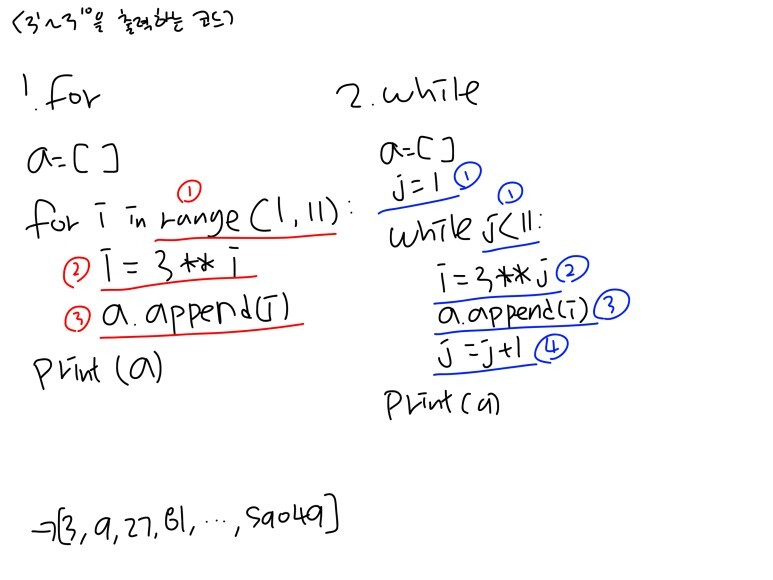 <3¹~3¹⁰을 출력하는 코드>
1. for
a=[]
for i in range(1,11): ①
② i = 3** i
③ a.append(i)
print(a)
2. while
a=[]
j=1 ①
while j<11: ①
i=3**j ②
a.append(i) ③
j=j+1 ④
print(a)
→[3, 9, 27, 81, ..., 59049]